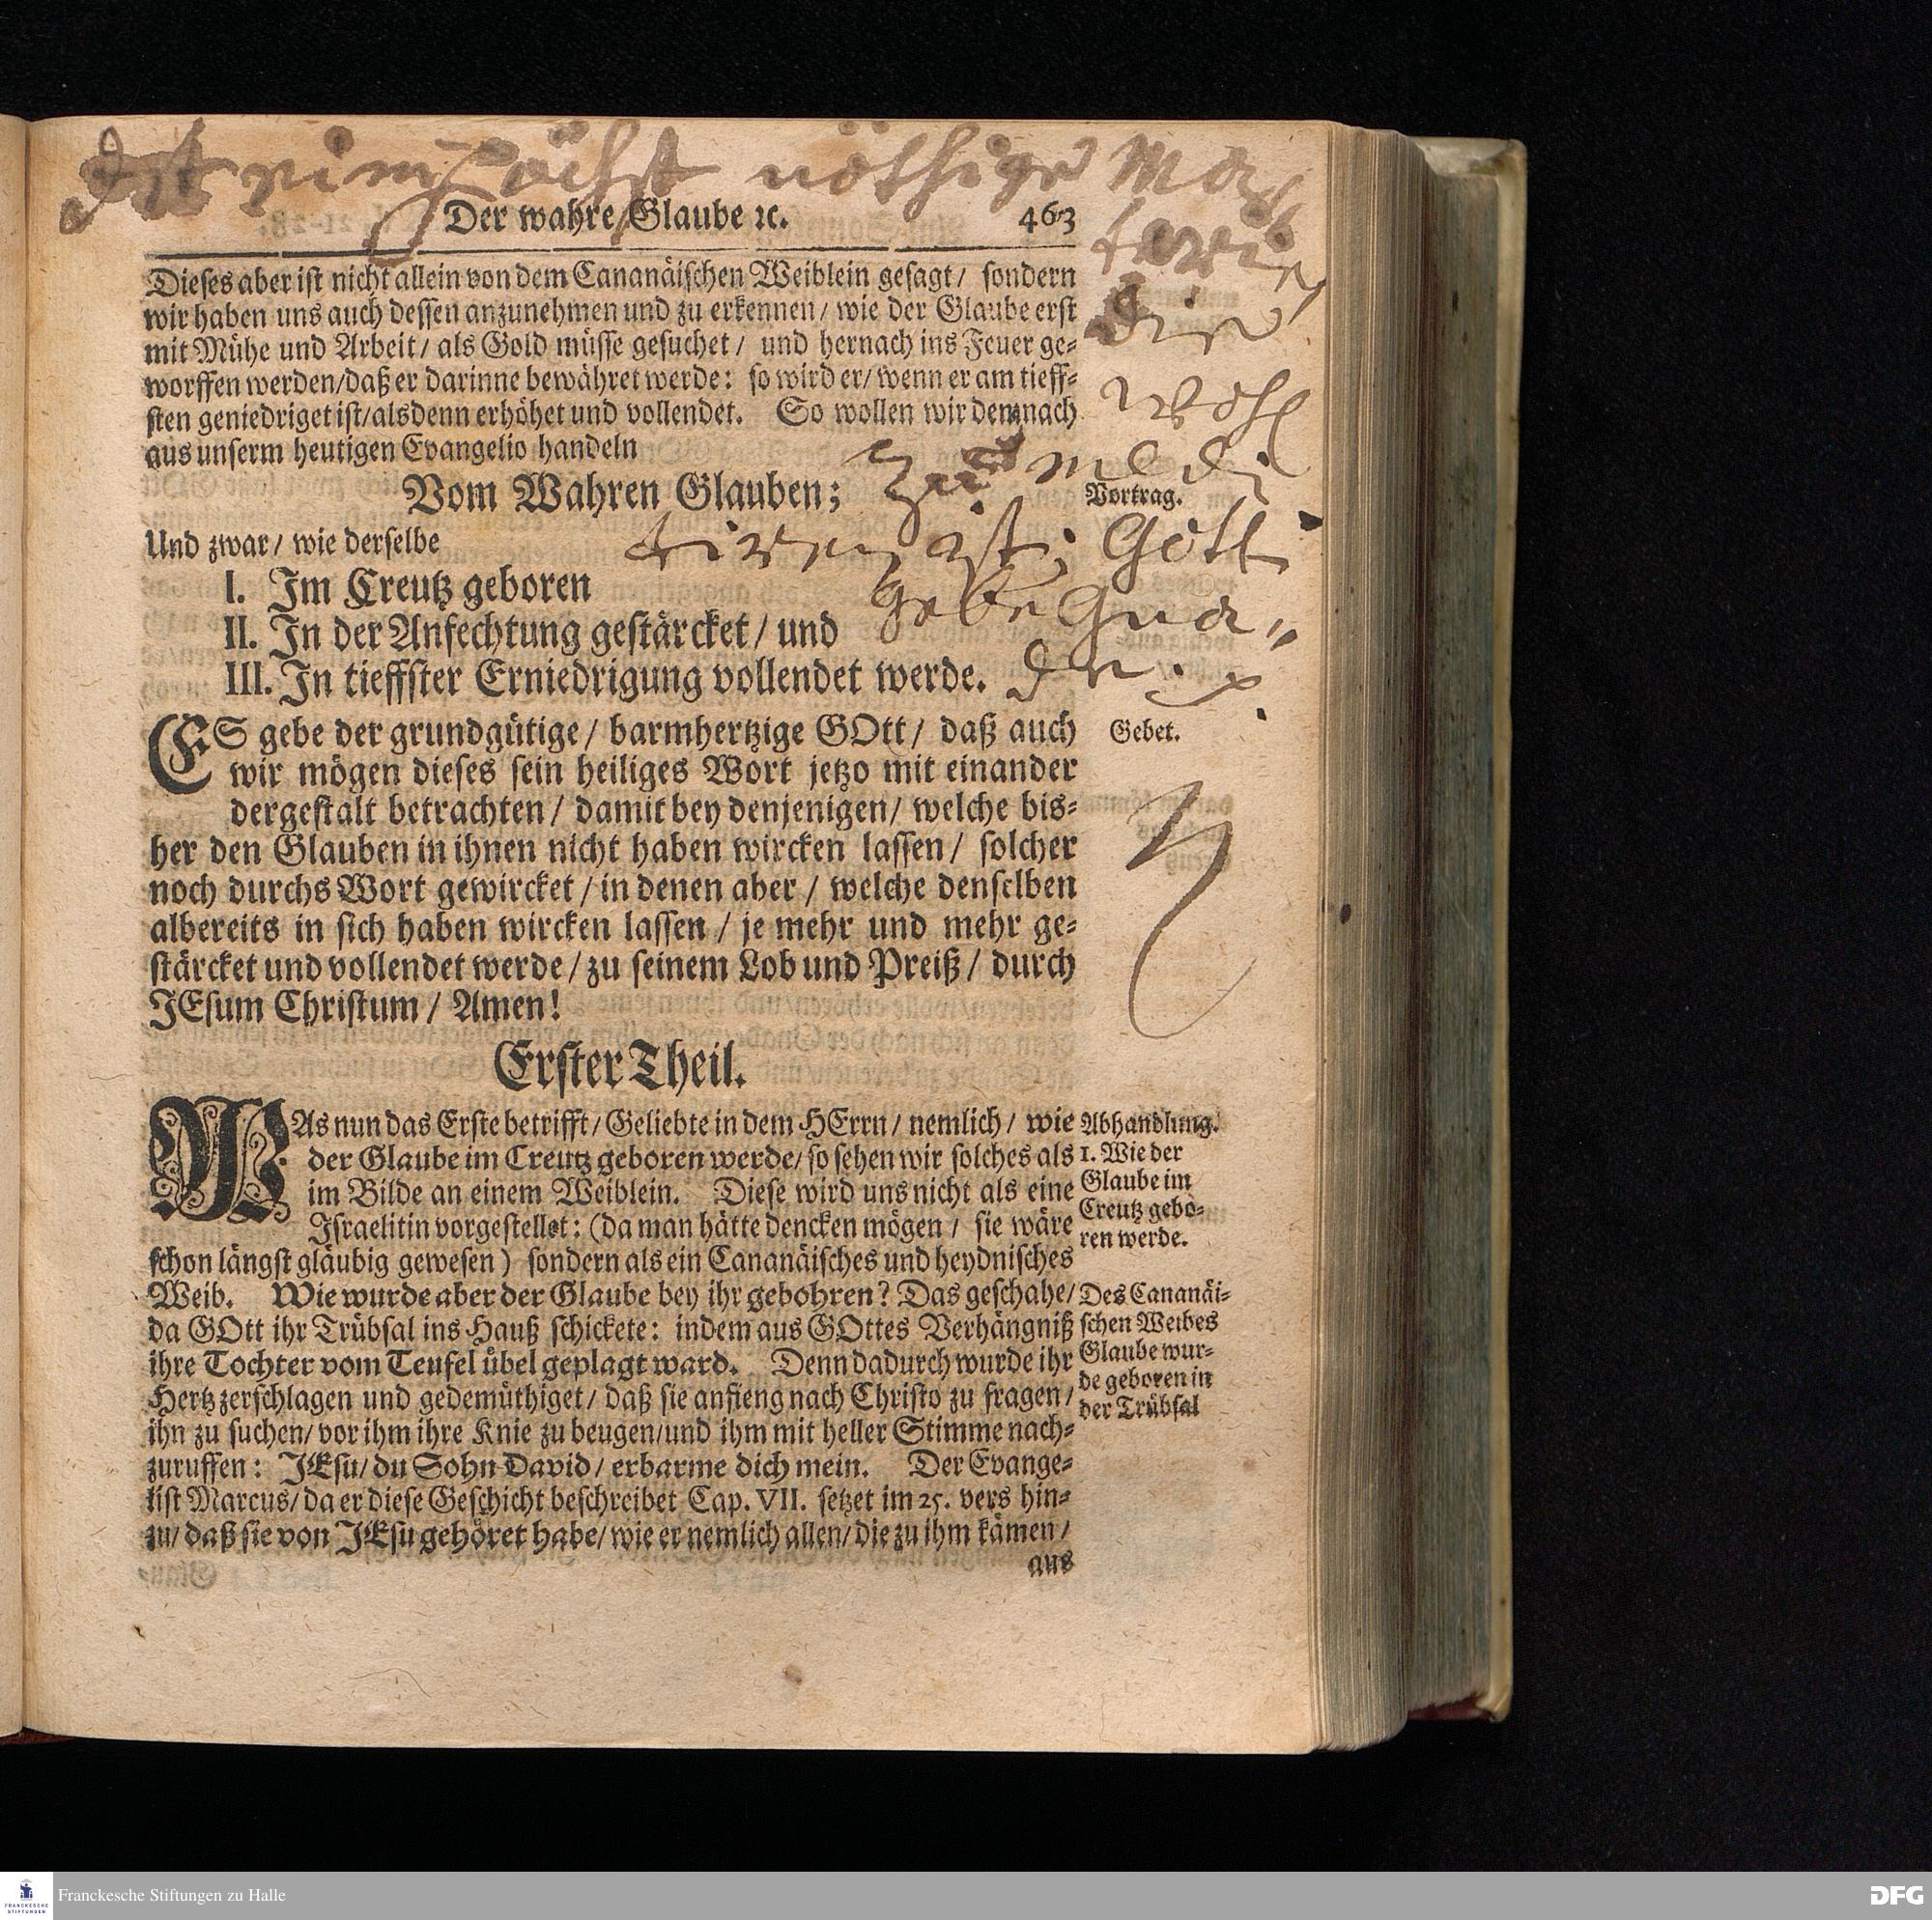 Ist eine höchst nöthige Ma-
Der wahre Glaube ꝛc. 463
terie
die
Dieses aber ist nicht allein von dem Cananäischen Weiblein gesagt/ sondern
wir haben uns auch dessen anzunehmen und zu erkennen/ wie der Glaube erst
mit Mühe und Arbeit/ als Gold müsse gesuchet/ und hernach ins Feuer ge-
worffen werden/ daß er darinne bewähret werde: so wird er/ wenn er am tieff-
sten geniedriget ist/ alsdenn erhöhet und vollendet. So wollen wir demnach
aus unserm heutigen Evangelio handeln
wohl
zu medi
Vom Wahren Glauben;
Vortrag.
tiren ist; Gott
Und zwar/ wie derselbe
I. Im Creutz geboren
gebe Gna-
II. In der Anfechtung gestärcket/ und
III. In tieffster Erniedrigung vollendet werde.
de.
ES gebe der grundgütige/ barmhertzige GOtt/ daß auch
Gebet.
wir mögen dieses sein heiliges Wort jetzo mit einander
dergestalt betrachten/ damit bey denjenigen/ welche bis-
her den Glauben in ihnen nicht haben wircken lassen/ solcher
noch durchs Wort gewircket/ in denen aber/ welche denselben
albereits in sich haben wircken lassen/ je mehr und mehr ge-
stärcket und vollendet werde/ zu seinem Lob und Preiß/ durch
JEsum Christum/ Amen!
Erster Theil.
WAs nun das Erste betrifft/ Geliebte in dem HErrn/ nemlich/ wie
der Glaube im Creutz geboren werde/ so sehen wir solches als
im Bilde an einem Weiblein. Diese wird uns nicht als eine
Israelitin vorgestellet: (da man hätte dencken mögen/ sie wäre
schon längst gläubig gewesen) sondern als ein Cananäisches und heydnisches
Weib. Wie wurde aber der Glaube bey ihr gebohren? Das geschahe/
da GOtt ihr Trübsal ins Hauß schickete: indem aus GOttes Verhängniß
ihre Tochter vom Teufel übel geplagt ward. Denn dadurch wurde ihr
Hertz zerschlagen und gedemüthiget/ daß sie anfieng nach Christo zu fragen/
ihn zu suchen/ vor ihm ihre Knie zu beugen/ und ihm mit heller Stimme nach-
zuruffen: JEsu/ du Sohn David/ erbarme dich mein. Der Evange-
list Marcus/ da er diese Geschicht beschreibet Cap. VII. setzet im 25. vers hin-
zu/ daß sie von JEsu gehöret habe/ wie er nemlich allen/ die zu ihm kämen/
aus
Abhandlung.
1. Wie der
Glaube im
Creutz gebo-
ren werde.
Des Cananäi-
schen Weibes
Glaube wur-
de geboren in
der Trübsal
FRANCKESCHE
STIFTUNGEN
Franckesche Stiftungen zu Halle
DFG